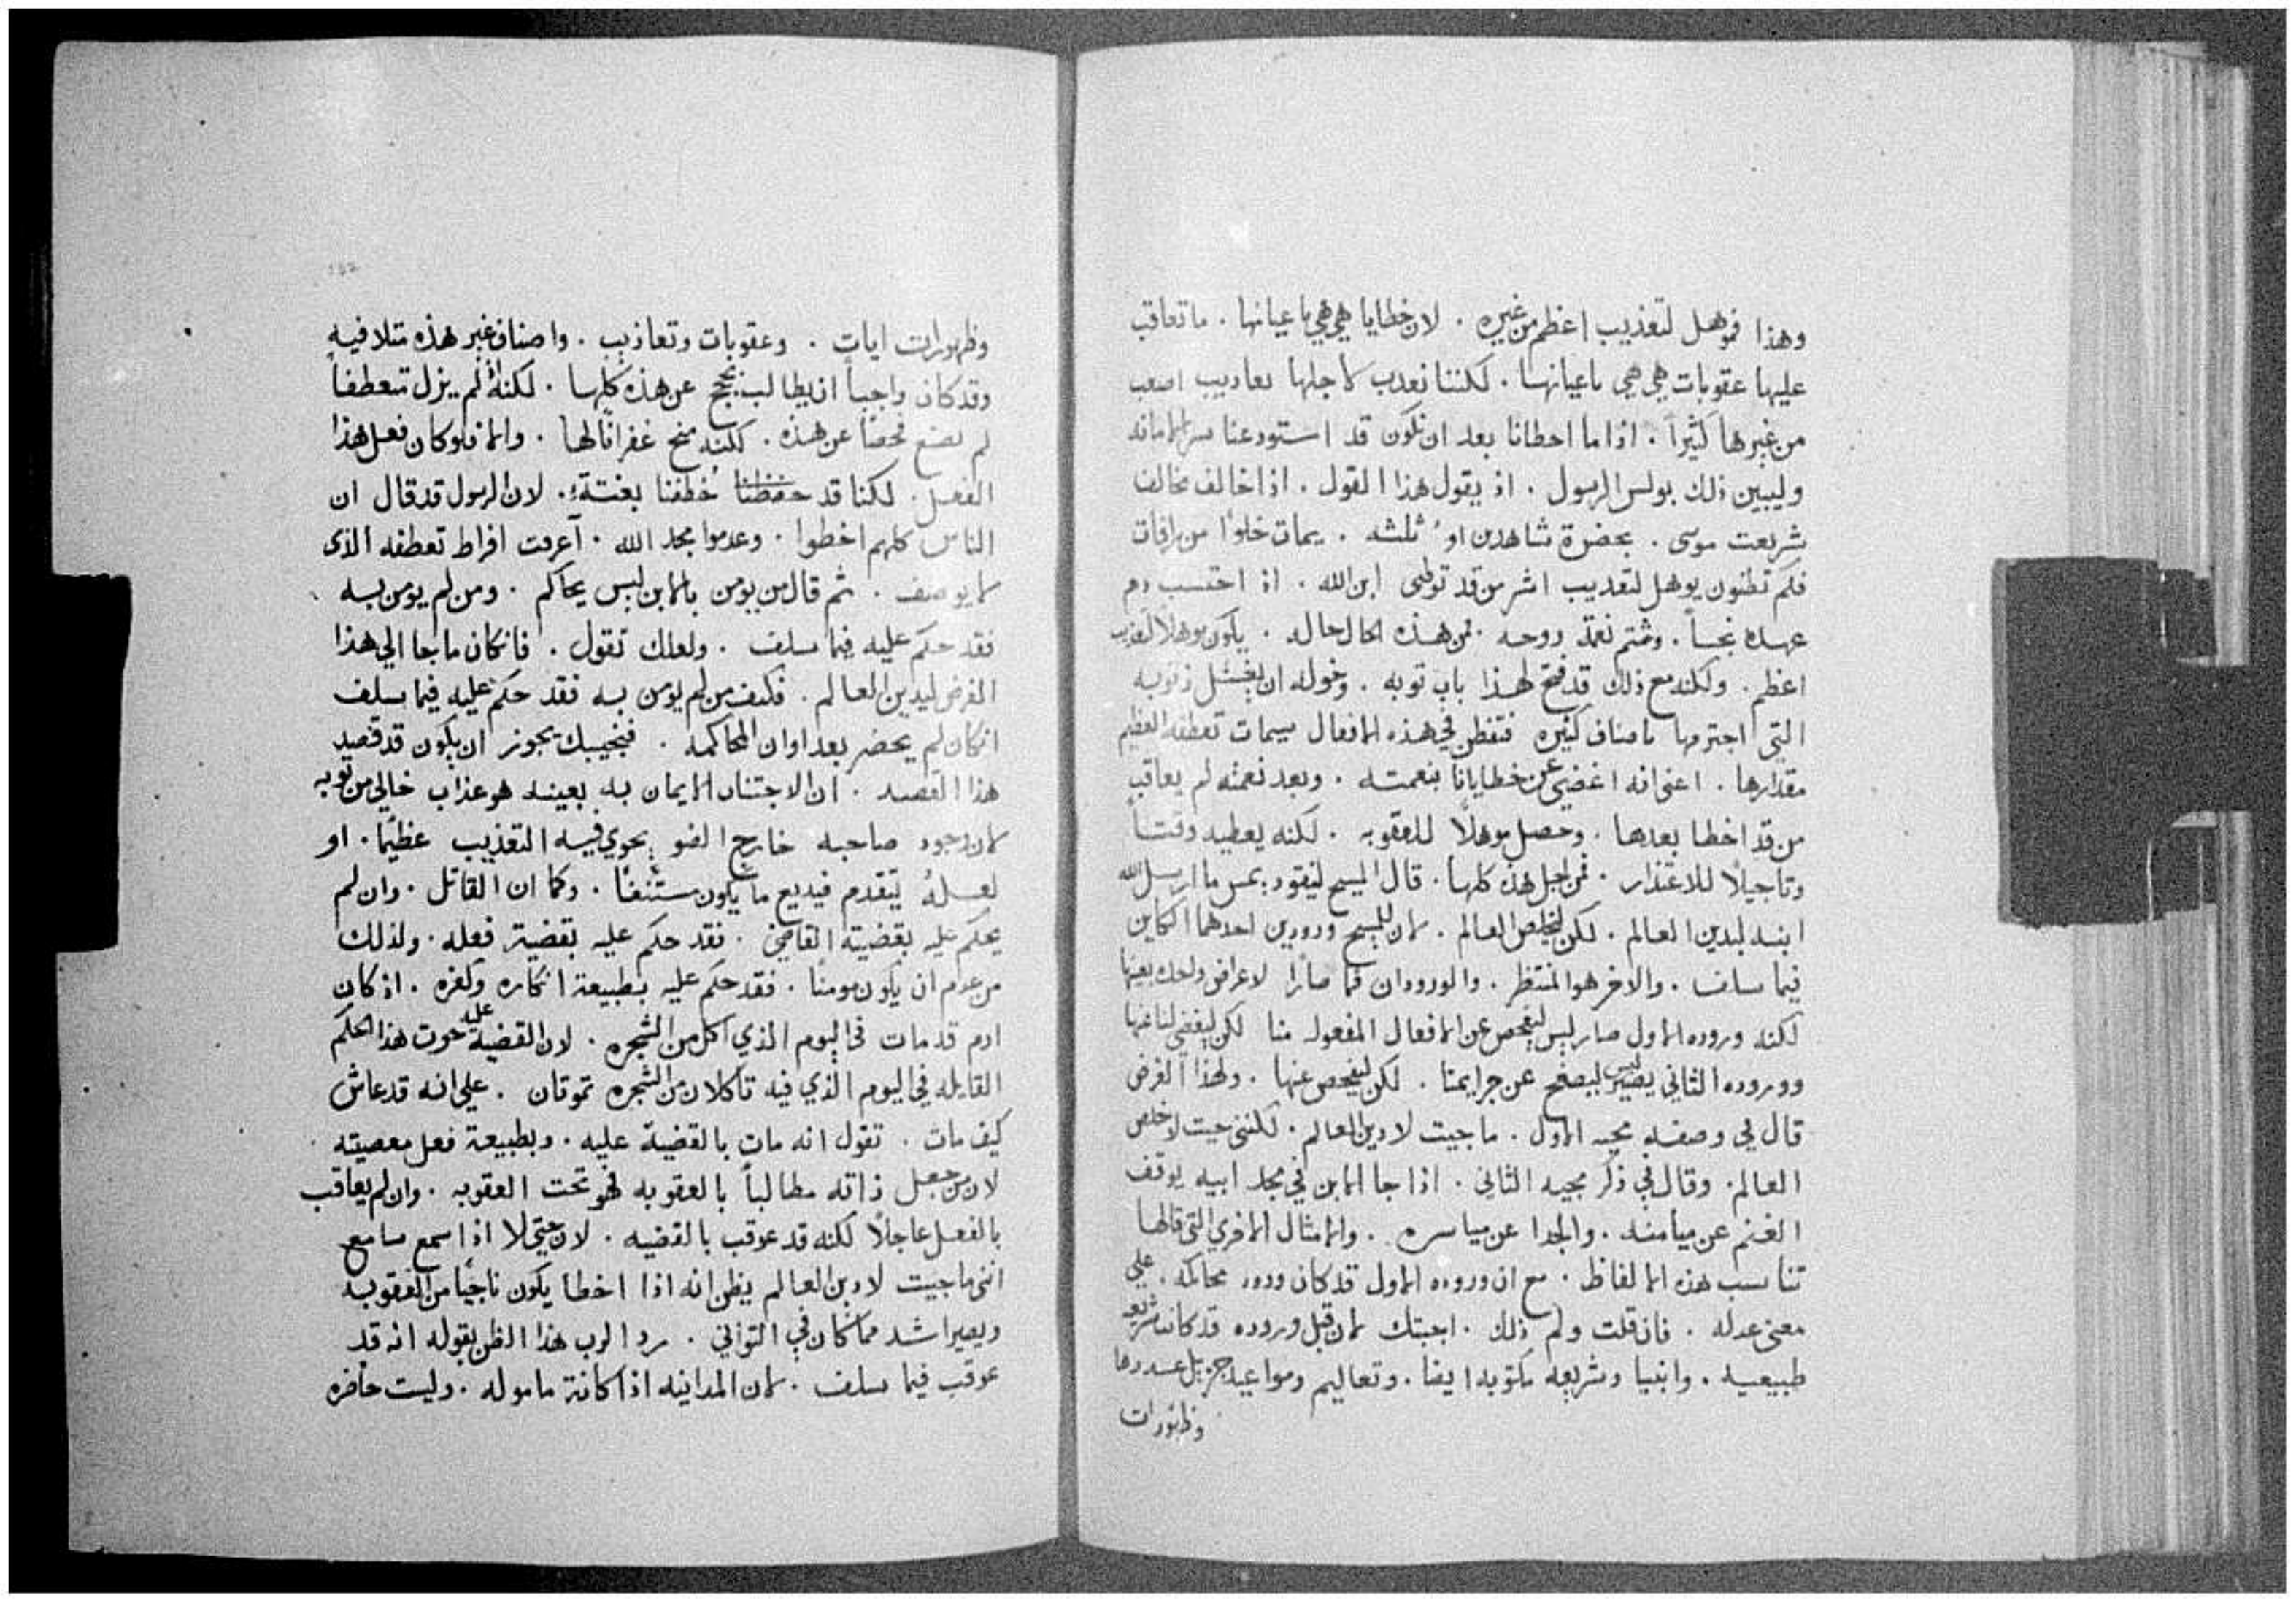 وهذا فموهل لتعذيب اعظم من غيره . لان خطايا هي هي باعيانها . ما تعاقب
عليها عقوبات هي هي باعيانها . لكننا نعذب لاجلها تعاذيب اصعب
من غيرها كثيراً . اذا ما اخطانا بعد ان نكون قد استودعنا سر الامانه
وليبين ذلك بولس الرسول . اذ يقول هذا القول . اذا خالف مخالف
شريعت موسى . بحضرة شاهدين او ثلثه . يمات خلوًا من رافات
فلكم تظنون يوهل لتعذيب اشر من قد توطى ابن الله . اذ احتسب دم
عهده نجساً . وشتم نعمة روحه . فمن هذه الحال حاله . يكون موهلاً لتعذيب
اعظم . ولكنه مع ذلك قد فتح لهذا باب توبه . وخوله ان يغسل ذنوبه
التي اجترمها باصناف كثيره فتفطن في هذه الافعال سيمات تعطفه العظيم
مقدارها . اعني انه اغضى عن خطايانا بنعمته . وبعد نعمته لم يعاقب
من قد اخطا بعدها . وحصل موهلاً للعقوبه . لكنه يعطيه وقتاً
وتاجيلاً للاعتذار . فمن اجل هذه كلها . قال المسيح لنيقوديمس ما ارسل الله
ابنه ليدين العالم . لكن ليخلص العالم . لان للمسيح ورودين احدهما الكاين
فيما سلف . والاخر هو المنتظر . والورودان فما صارا لاعراض واحده بعينها
لكنه وروده الاول صار ليس ليفحص عن الافعال المفعوله منا لكن ليغضي لنا عنها
ووروده الثاني يصير ليس ليصفح عن جرايمنا . لكن ليفحص عنها . ولهذا الغرض
قال في وصفه مجيه الاول . ما جيت لادين العالم . لكنني جيت لاخلص
العالم . وقال في ذكر مجيه الثاني . اذا جا الابن في مجد ابيه يوقف
الغنم عن ميامنه . والجدا عن مياسره . والامثال الاخرى التي قالها
تناسب هذه الالفاظ . مع ان وروده الاول قد كان ورود محاكمه . علي
معنى عدله . فان قلت ولم ذلك . اجبتك لان قبل وروده قد كانت شريعه
طبيعيه . وانبيا وشريعه مكتوبه ايضا . وتعاليم ومواعيد جزيل عددها
وظهورات
وظهورات ايات . وعقوبات وتعاذيب . واصناف غير هذه متلافيه
وقد كان واجباً ان يطالب بحجج عن هذه كلها . لكنه اذ لم يزل متعطفاً
لم يصنع فحصًا عن هذه . لكنه منح غفرانًا لها . والا فلو كان فعل هذا
الفعل . لكنا قد خطفنا بغتةً . لان الرسول قد قال ان
الناس كلهم اخطوا . وعدموا مجد الله . أعرفت افراط تعطفه الذى
لا يوصف . ثم قال من يومن بالابن ليس يحاكم . ومن لم يومن به
فقد حكم عليه فيما سلف . ولعلك تقول . فان كان ما جا الي هذا
الغرض ليدين العالم . فكيف من لم يومن به فقد حكم عليه فيما سلف
ان كان لم يحضر بعد اوان المحاكمه . فنجيبك يجوز ان يكون قد قصد
هذا القصد . ان الاجتناب الايمان به بعينه هو عذاب خالي من توبه
لان وجود صاحبه خارج الضو يحوي فيه التعذيب عظيمًا . او
لعلهُ يتقدم فيذيع ما يكون مستنفًا . وكما ان القاتل . وان لم
يحكم عليه بقضية القاضي . فقد حكم عليه بقضية فعله . ولذلك
من عدم ان يكون مومنًا . فقد حكم عليه بطبيعة انكاره وكفره . اذ كان
ادم قد مات فى اليوم الذي اكل من الشجره . لان القضية عليه حوت هذا الحكم
القايله في اليوم الذي فيه تاكلان من الشجره تموتان . علي انه قد عاش
كيف مات . تقول انه مات بالقضية عليه . وبطبيعة فعل معصيته
لان من جعل ذاته مطالباً بالعقوبه فهو تحت العقوبه . وان لم يعاقب
بالفعل عاجلاً لكنه قد عوقب بالقضيه . لان حتى لا اذا سمع سامع
انني ما جيت لادين العالم يظن انه اذا اخطا يكون ناجيًا من العقوبه
ويصير اشد مما كان في التواني . رد الرب هذا الظن بقوله انه قد
عوقب فيما سلف . لان المداينه اذا كانة ماموله . وليست حاضره